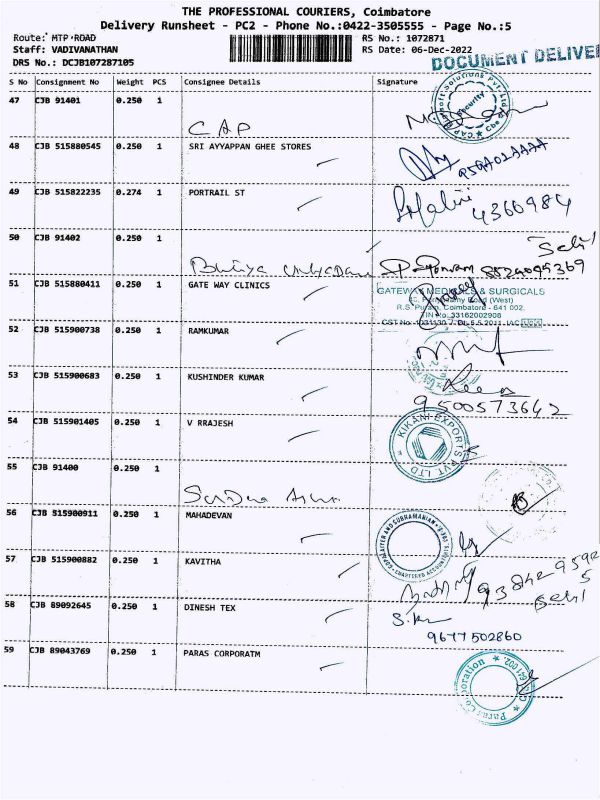 THE PROFESSIONAL COURIERS, Coimbatore
Delivery Runsheet - PC2 - Phone No.:0422-3505555 - Page No.:5
Route: MTP ROAD
RS No.: 1072871
Staff: VADIVANATHAN
RS Date: 06-Dec-2022
DRS No.: DCJB107287105
DOCUMENT DELIVER
S No Consignment No Weight PCS Consignee Details Signature
47 CJB 91401 0.250 1
CAP
48 CJB 515880545 0.250 1 SRI AYYAPPAN GHEE STORES
49 CJB 515822235 0.274 1 PORTRAIL ST
4360984
50 CJB 91402 0.250 1
51 CJB 515880411 0.250 1 GATE WAY CLINICS
GATEWAY MEDICALS & SURGICALS
R.S. Puram, Coimbatore - 641 002.
TIN No: 33162002908
52 CJB 515900738 0.250 1 RAMKUMAR
53 CJB 515900683 0.250 1 KUSHINDER KUMAR
9500573642
54 CJB 515901405 0.250 1 V RRAJESH
KIKANI EXPORTS PVT. LTD
55 CJB 91400 0.250 1
56 CJB 515900911 0.250 1 MAHADEVAN
CHARTERED ACCOUNTANTS
57 CJB 515900882 0.250 1 KAVITHA
58 CJB 89092645 0.250 1 DINESH TEX
9677502860
59 CJB 89043769 0.250 1 PARAS CORPORATM
Paras Corporation
641 002